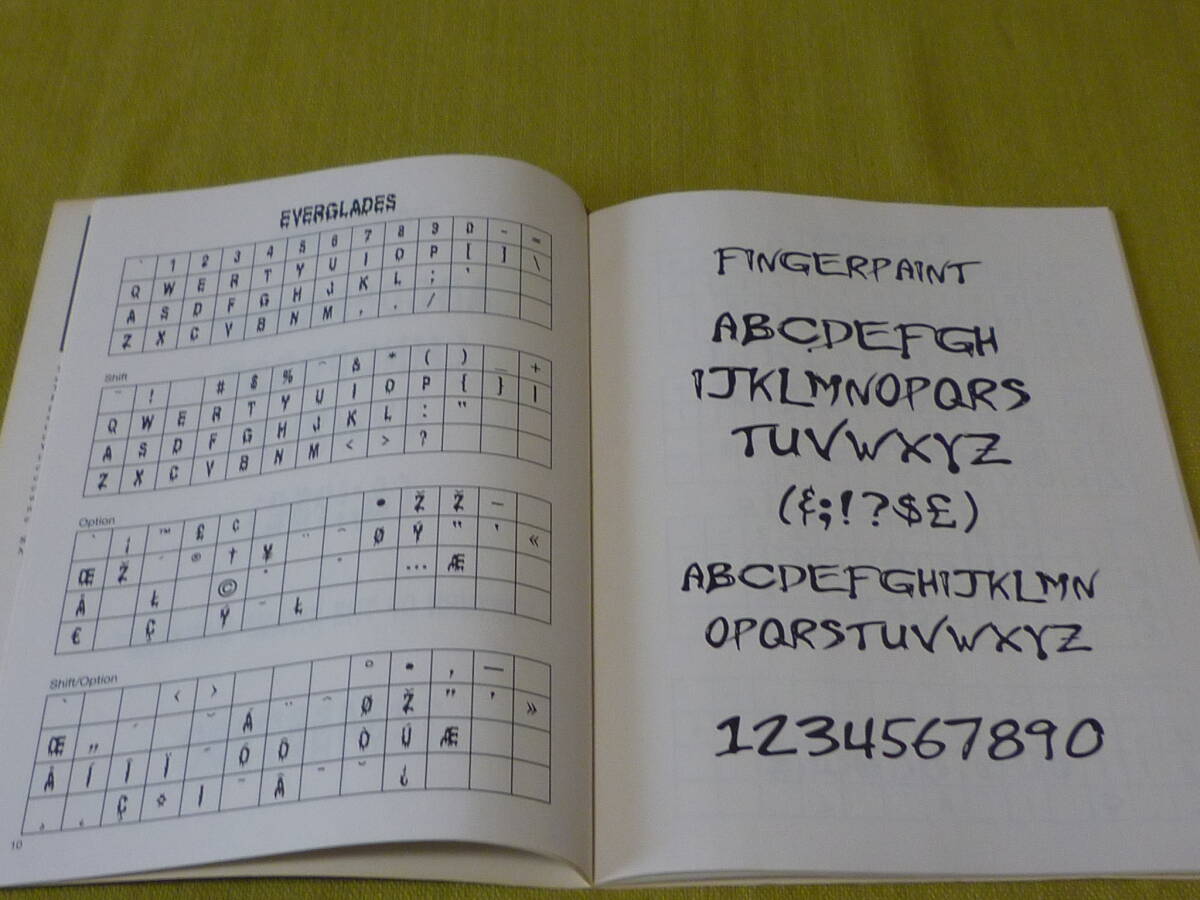 EVERGLADES
` 1 2 3 4 5 6 7 8 9 0 - =
Q W E R T Y U I O P [ ] \
A S D F G H J K L ; '
Z X C V B N M , . /
Shift
~ ! # $ % ^ & * ( ) _ +
Q W E R T Y U I O P { } |
A S D F G H J K L : "
Z X C V B N M < > ?
Option
` ¡ ™ £ ¢ • Ž Ž –
Œ Ž ´ ® † ¥ ¨ ˆ Ø Ý " ' «
Å Ł © ˙ … Æ
€ Ç Ý Ł
Shift/Option
` ‹ › ° • , —
Œ „ ´ ˇ Á ¨ ˆ Ø Ž " ' »
Å Í Î Ï Ó Ô Ò Ú Æ
¸ Ç Â ¯ ˘ ¿
10
FINGERPAINT
ABCDEFGH
IJKLMNOPQRS
TUVWXYZ
(&;!?$£)
ABCDEFGHIJKLMN
OPQRSTUVWXYZ
1234567890